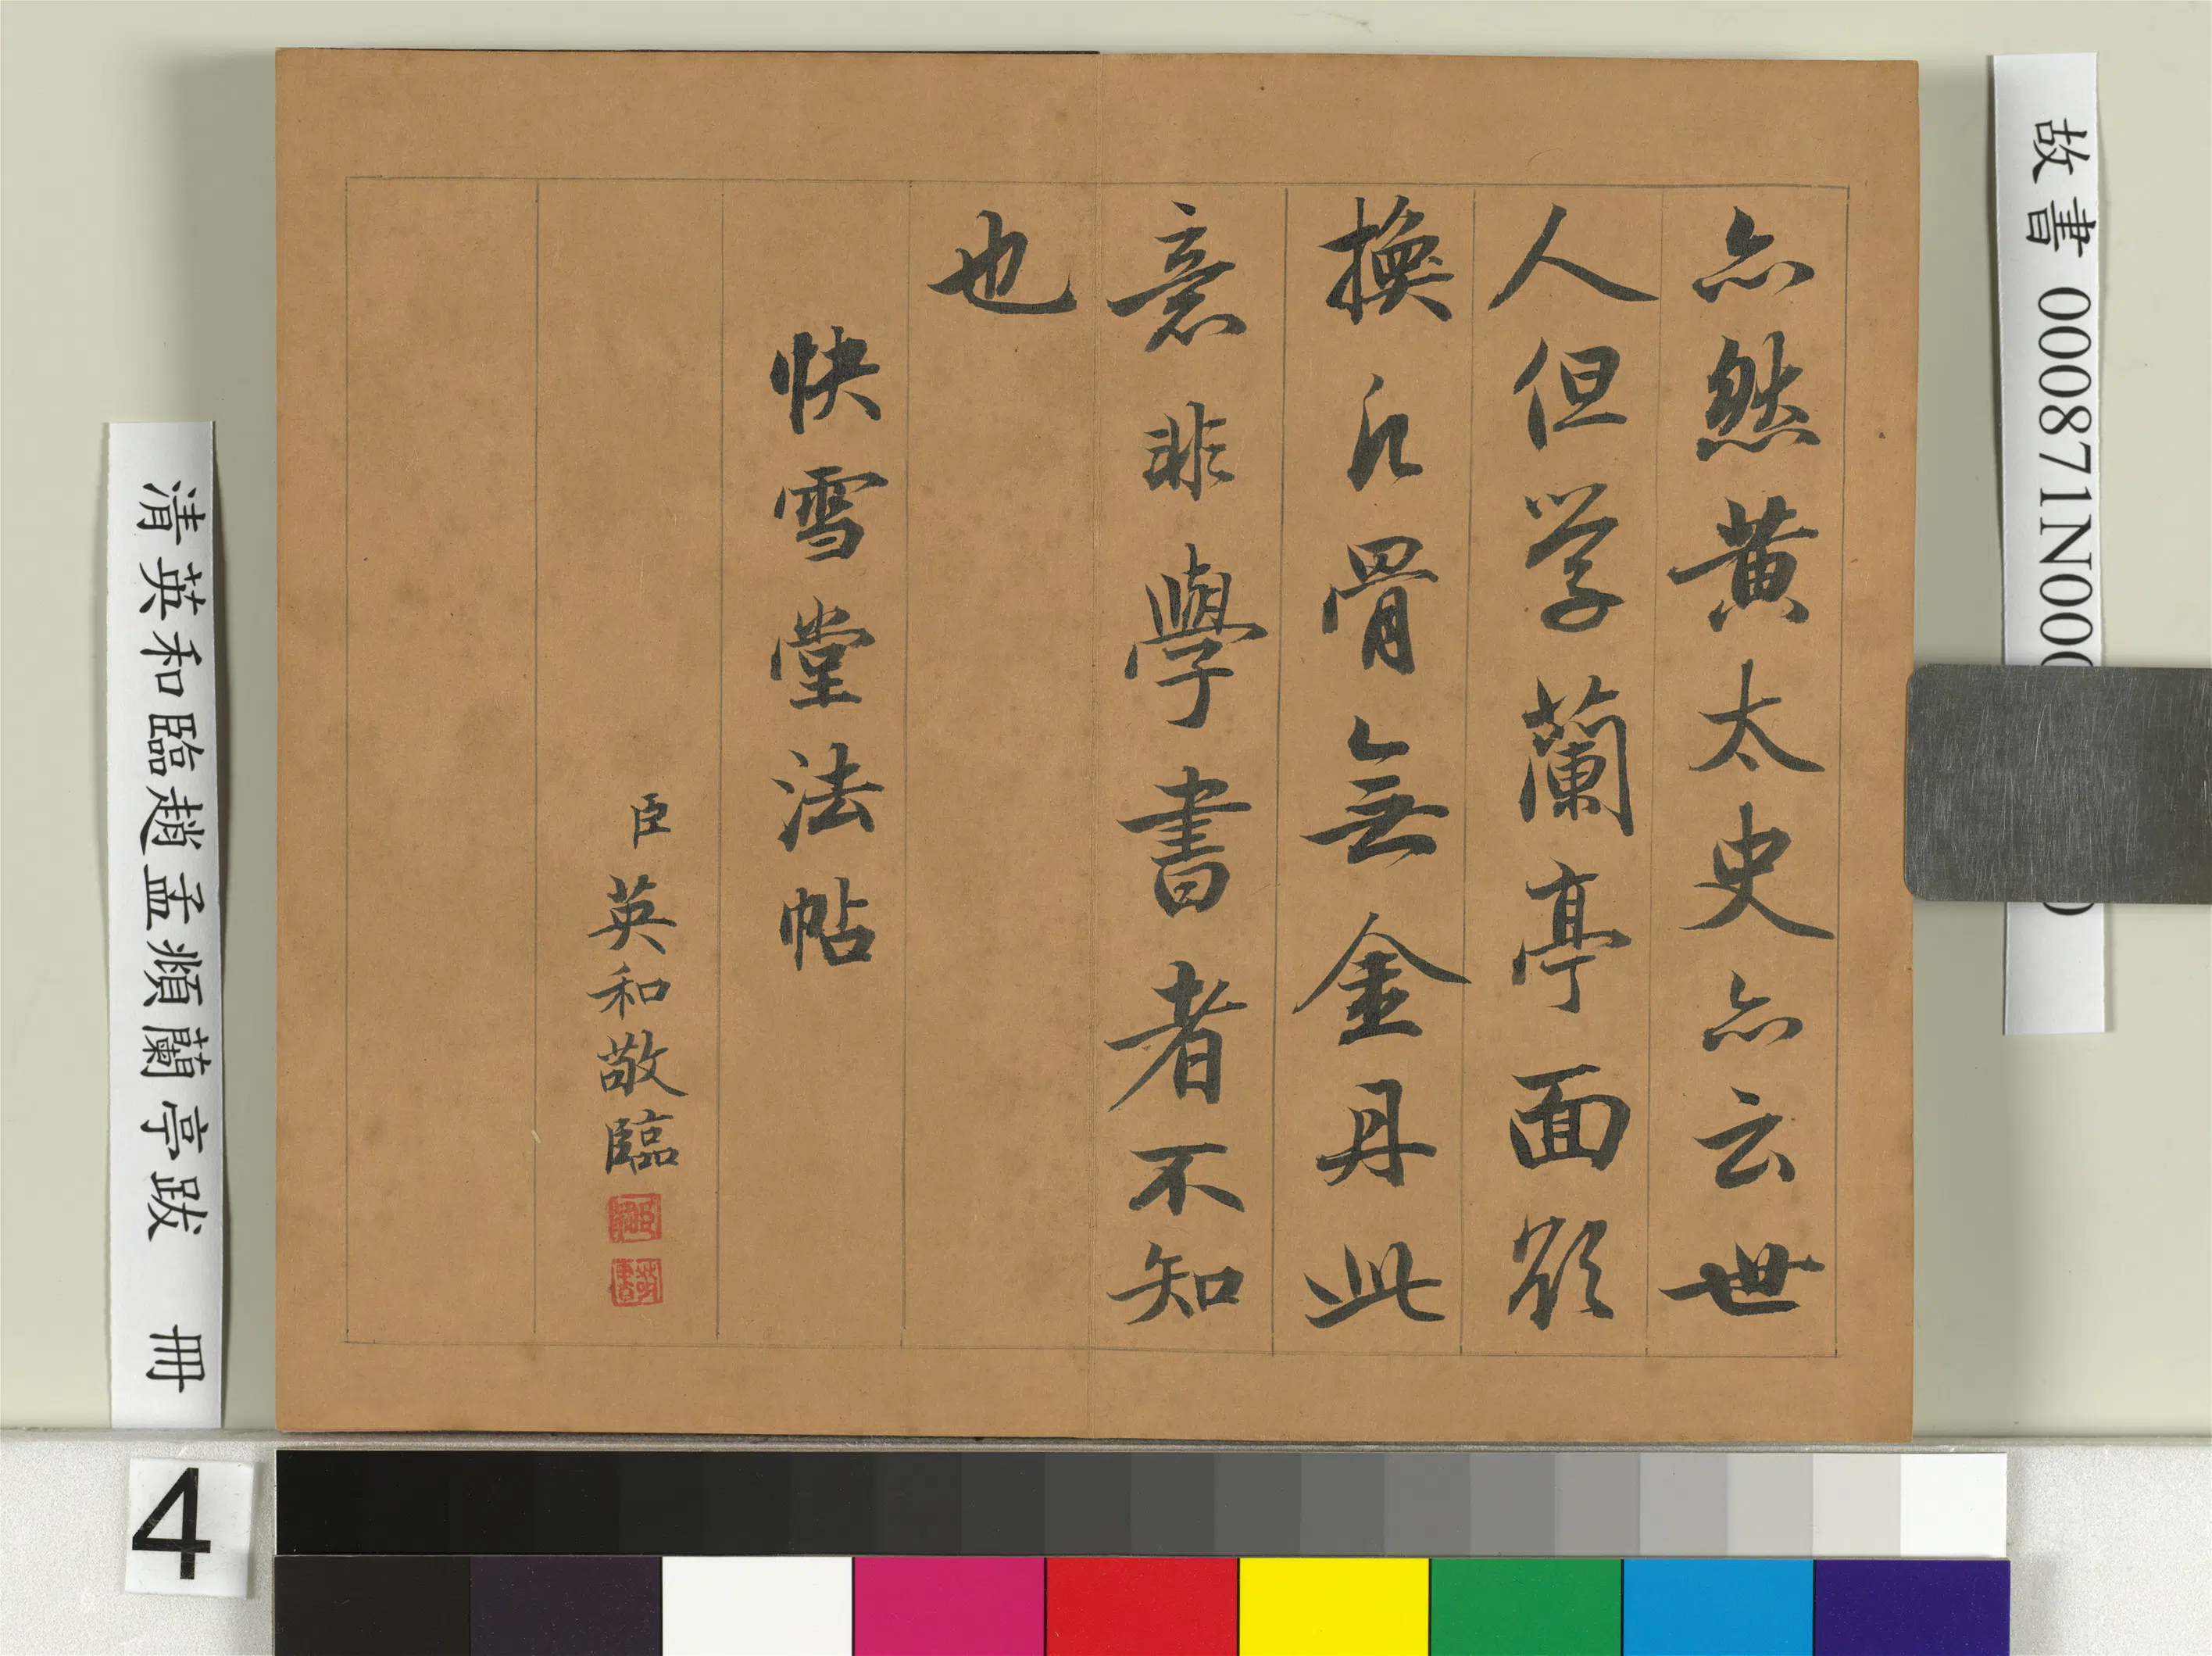 故書 000871N000
亦然黄太史亦云世
人但学蘭亭面欲
換凡骨無金丹此
意非學書者不知
也
快雪堂法帖
臣英和敬臨
清英和臨趙孟頫蘭亭跋 冊
4